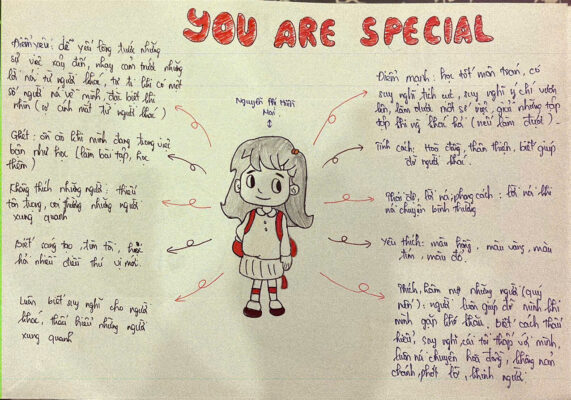 YOU ARE SPECIAL
Điểm yếu: dễ yếu lòng trước những
sự việc xảy đến, nhạy cảm trước những
lời nói từ người khác, tự ti khi có một
số người nói về mình, đặc biệt khi
nhìn (sự ánh mắt từ người khác)
Ghét: ồn ào khi mình đang trong việc
bận như học (làm bài tập, học
thêm)
Không thích những người: thiếu
tôn trọng, coi thường những người
xung quanh
Biết sáng tạo, tìm tòi, 
hỏi nhiều điều thú vị mới
Luôn biết suy nghĩ cho người
khác, thấu hiểu những người
xung quanh
Nguyễn Phi
Điểm mạnh: học tốt môn toán, có
suy nghĩ tích cực, suy nghĩ ý chí vươn
lên, làm được một số việc, giải những
khi về khác hỏi (nếu làm được).
Tính cách: Hoà đồng, thân thiện, biết giúp
đỡ người khác.
Thái độ, lời nói, phong cách: lời nói khi
nói chuyện bình thường
Yêu thích: màu hồng, màu vàng, màu
tím, màu đỏ.
Thích, hâm mộ những người (quý
mến): người luôn giúp đỡ mình khi
mình gặp khó khăn, biết cách thấu
hiểu, suy nghĩ, cái tôi thấp với mình,
luôn nói chuyện hoà đồng, không
chảnh, phớt lờ, khinh người